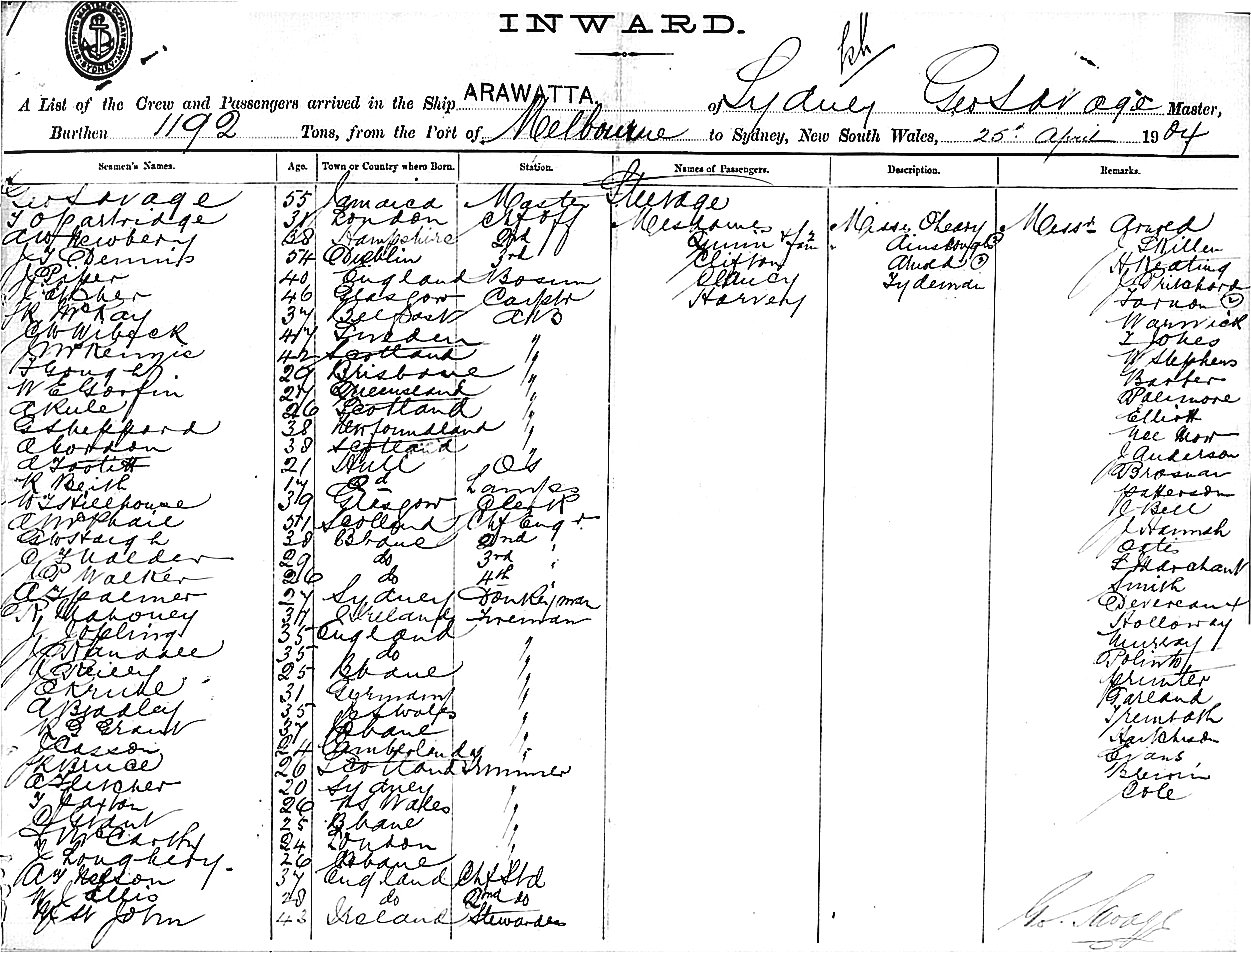 SHIPPING MASTERS DEPARTMENT SYDNEY
INWARD.
A List of the Crew and Passengers arrived in the Ship ARAWATTA of Sydney Geo Savage Master,
Burthen 1192 Tons, from the Port of Melbourne to Sydney, New South Wales, 25th April 1904
Seamen's Names. Age. Town or Country where Born. Station. Names of Passengers. Description. Remarks.
Geo Savage 55 Jamaica Master Steerage
T O Partridge London Chf Off Mesdames Misses O'Leary Messrs Arnold
A W Newbery 38 Hampshire 2nd Quinn Ainsbough J Skillen
Dennis 54 Dublin 3rd Clifton Arnold H Keating
J Potter 40 England Bosun Clancy Tydeman J Pritchard
46 Glasgow Carptr Harvey Farnon
McKay 37 Belfast AB Warwick
G W Wibeck 47 Sweden " T Jones
J McKenzie 42 Scotland " W Stephens
T Gough 29 Brisbane " Barber
W E Gorfin 27 Queensland " Palimore
A Rule 26 Scotland " Elliott
G Sheppard 38 Newfoundland " Mee Mow
A Gordon 38 Scotland " J Anderson
A Footitt 21 Hull O S Brosnan
R Keith 17 Lamps Patterson
W T Hillhouse 39 Glasgow Clerk J Bell
A McPhail 51 Scotland Chf Engr J Hannah
38 Bbane 2nd " Oates
Walder 29 do 3rd " F Marchant
P Walker 26 do 4th " Smith
A T Palmer 27 Sydney Donkeyman Devereaux
R Mahoney 37 Ireland Fireman Holloway
J Jopling 35 England Murray
J Randall 35 do "
J Reilly 25 Bbane "
C Kruse 31 Germany " Garland
A Bradley 35 N S Wales " Trembath
R G Grant 37 Bbane " Hutchison
J Casson 24 Cumberland " Evans
Bruce 26 Scotland Trimmer
A Fletcher 20 Sydney " Cole
T Saxton 26 N S Wales "
Grant 25 Bbane "
J McCarthy 24 London "
J Loughery 26 Bbane "
A T Nelson 37 England Chf Std
W J Ellis 28 do 2nd do
M St John 43 Ireland Stewardess
Geo. Savage